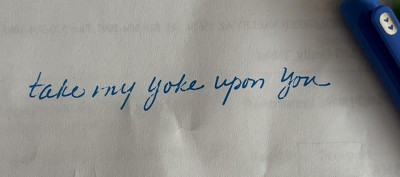 take my yoke upon you